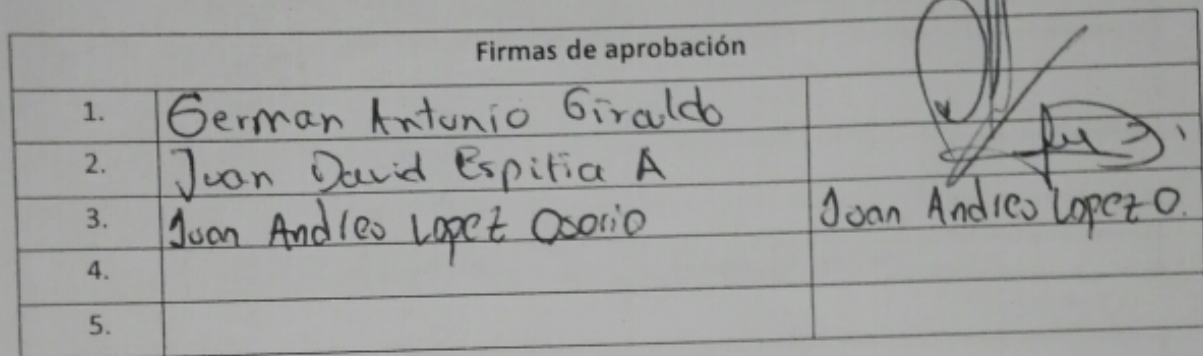 Firmas de aprobación
1. German Antonio Giraldo
2. Juan David Espitia A
3. Juan Andres Lopez Osorio Juan Andres Lopez O.
4.
5.